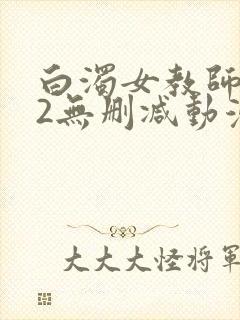 白濁女教師
2無删减動漫
大大大怪将軍